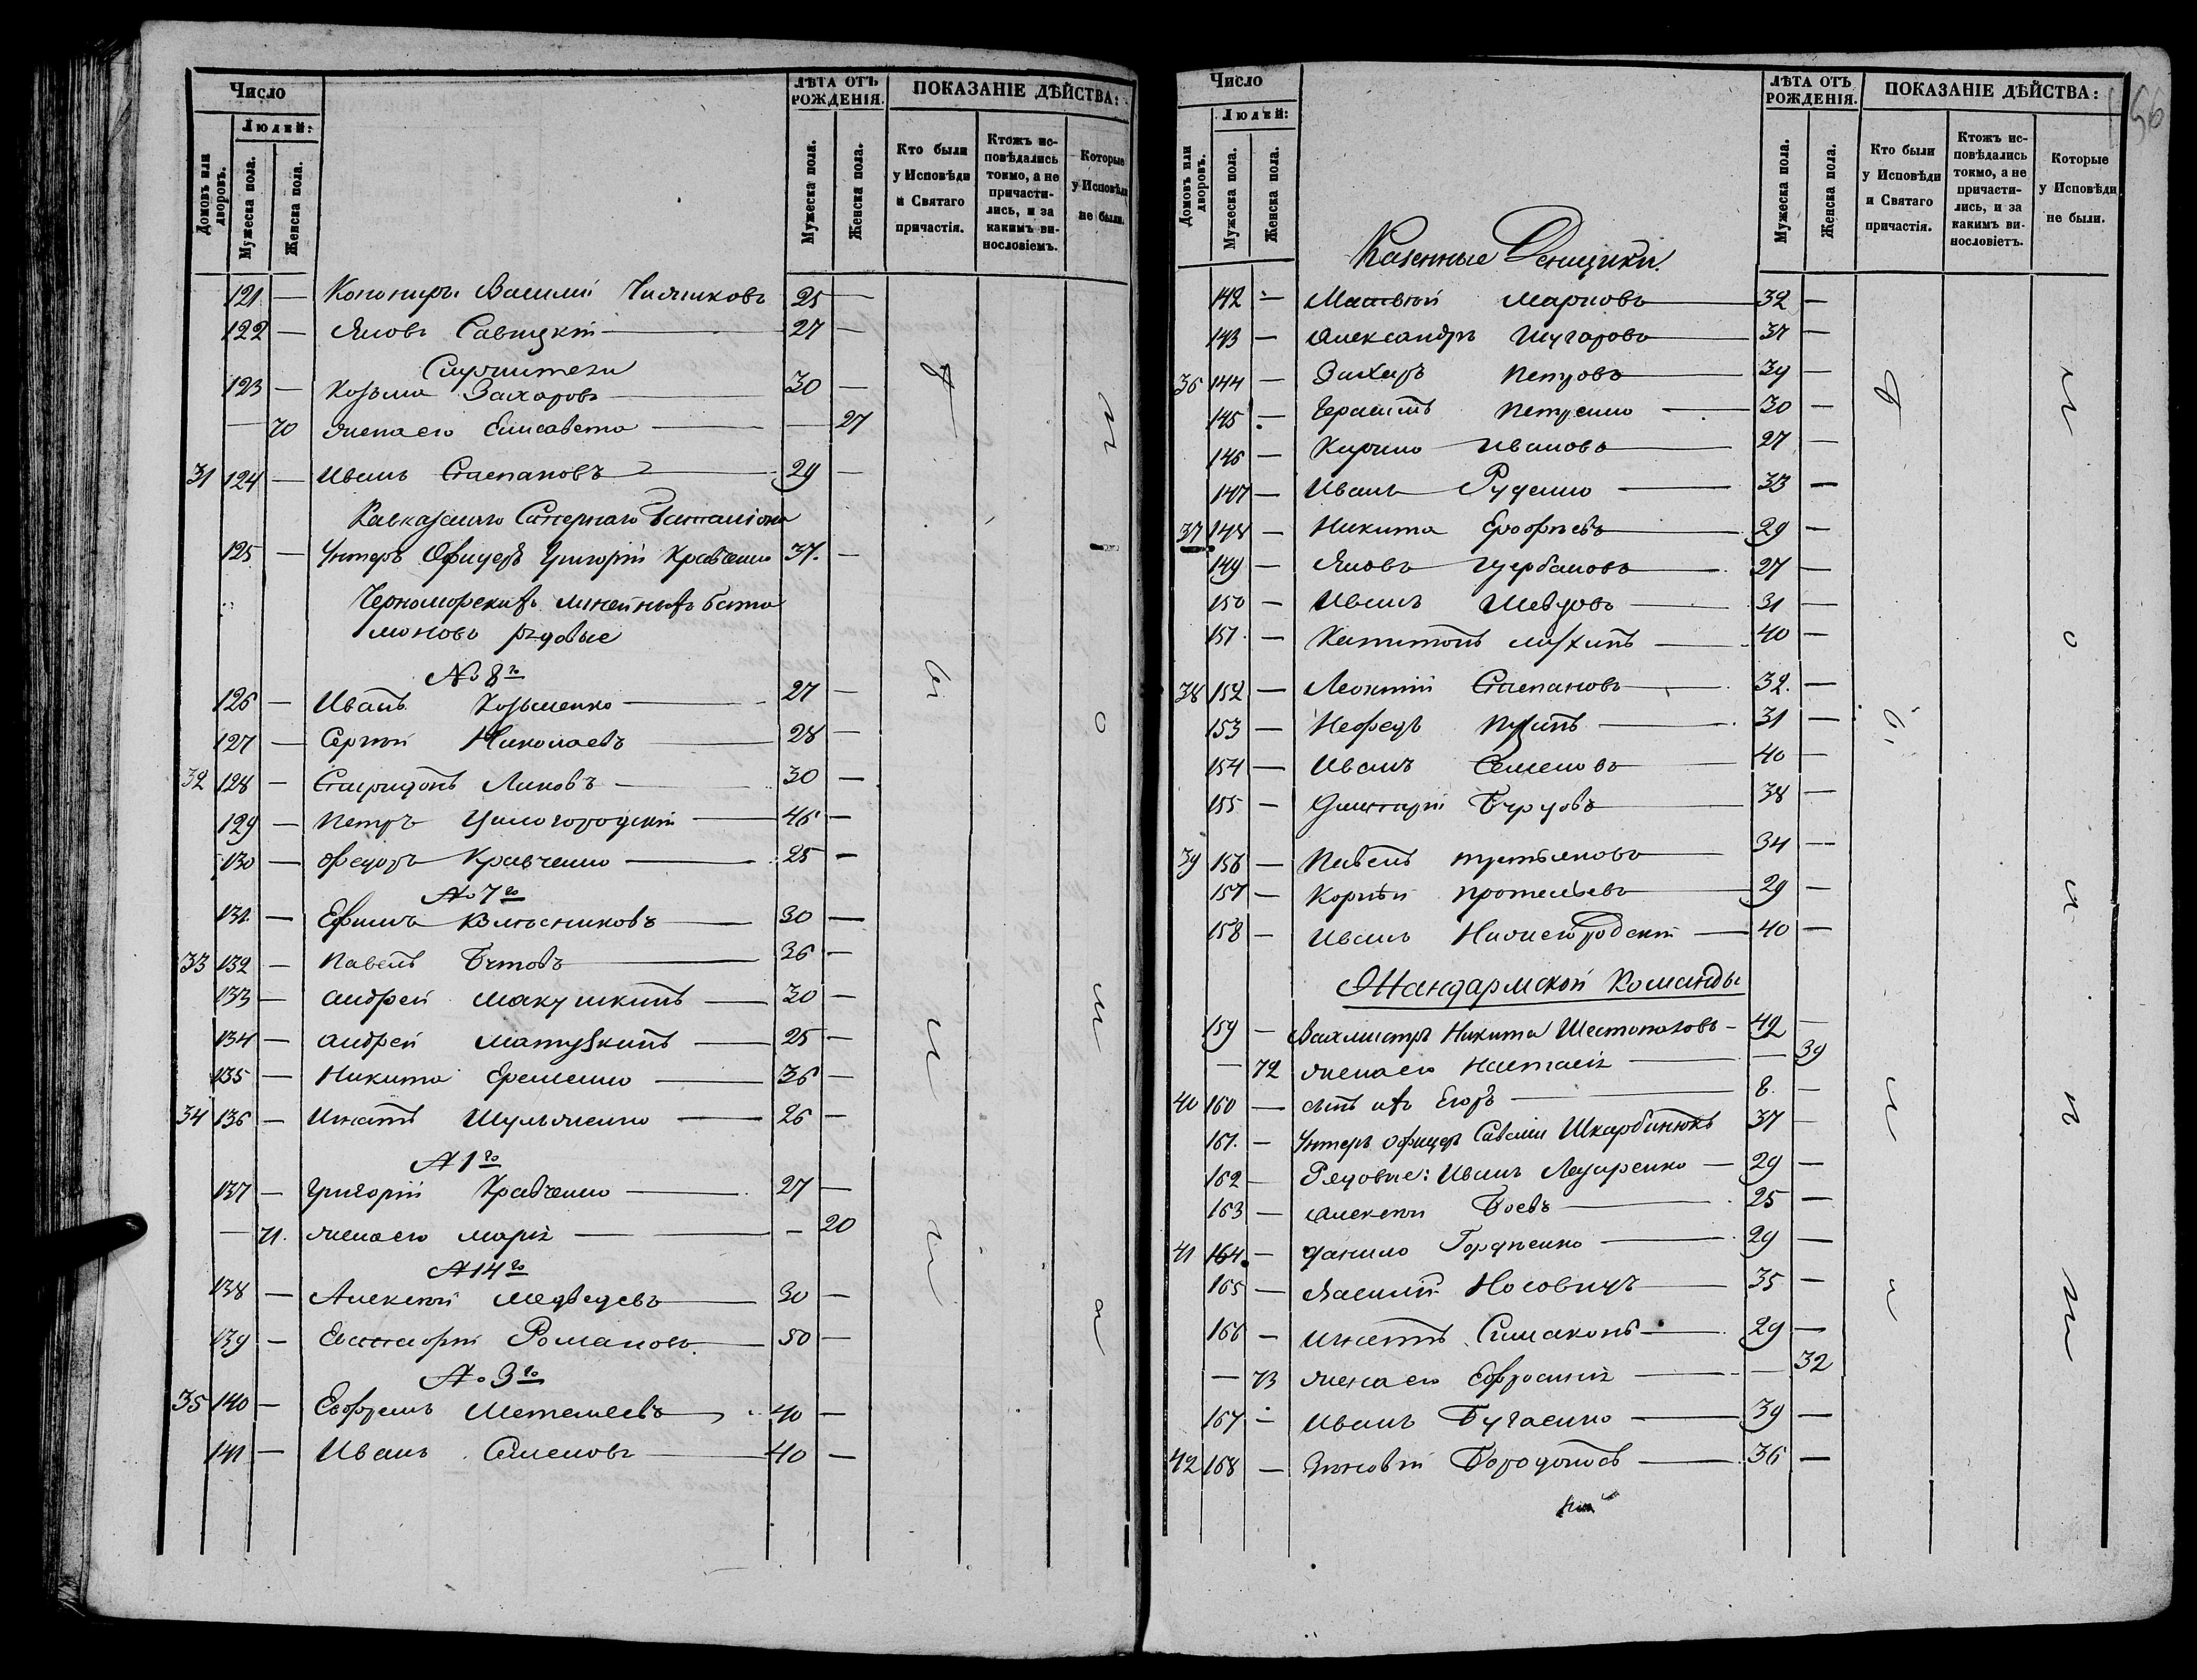 Число
Людей:
Домовъ или дворовъ.
Мужеска пола.
Женска пола.
ЛѢТА ОТЪ РОЖДЕНІЯ.
Мужеска пола.
Женска пола.
ПОКАЗАНІЕ ДѢЙСТВА:
Кто были у Исповѣди и Святаго причастія.
Ктожъ исповѣдались токмо, а не причастились, и за какимъ винословіемъ.
Которые у Исповѣди не были.
121 — Василий 25 —
122 — Яковъ Савицкій — 27 —
Служители
123 — Козьма Захаровъ — 30 —
— 70 жена его Елисавета — — 27
31 124 — Иванъ Степановъ — 29 —
Кавказскаго Сапернаго Баталіона
125 — Унтеръ Офицеръ Григорій Кравченко 37. —
Черноморскихъ линейныхъ бата
ліоновъ рядовые
№ 8го
126 — Иванъ Козьменко — 27 —
127 — Сергѣй Николаевъ — 28 —
32 128 — Спиридонъ — 30 —
129 — Петръ — 46 —
130 — Федоръ Кравченко — 25 —
№ 7го
131. — Ефимъ — 30 —
33 132 — Павелъ — 36 —
133 — Андрей Макушкинъ — 30 —
134 — Андрей — 25 —
135 — Никита Еременко — 36 —
34 136 — Игнатъ — 26 —
№ 1го
137 — Григорій Кравченко — 27 —
— 71. жена его Марія — — 20
№ 14го
138 — Алексѣй Медведевъ — 30 —
139 — Евстафій Романовъ. 50 —
№ 3го
35 140 — — 40 —
141 — Иванъ Семеновъ — 40 —
Число
Людей:
Домовъ или дворовъ.
Мужеска пола.
Женска пола.
Казенные Денщики.
ЛѢТА ОТЪ РОЖДЕНІЯ.
Мужеска пола.
Женска пола.
ПОКАЗАНІЕ ДѢЙСТВА:
Кто были у Исповѣди и Святаго причастія.
Ктожъ исповѣдались токмо, а не причастились, и за какимъ винословіетъ.
Которые у Исповѣди не были.
156
142 — Матвѣй Марковъ — 32 —
143 — Александръ — 37 —
36 144 — Захаръ Петровъ — 39 —
145 — Герасимъ Петренко — 30 —
146 — Кирило Ивановъ — 27 —
147 — Иванъ Руденко — 33 —
37 148 — Никита Ерофѣевъ — 29 —
149 — Яковъ Щербаковъ — 27 —
150 — Иванъ Шевцовъ — 31 —
151. — Капитонъ — 40 —
38 152 — Леонтій Степановъ — 32. —
153 — Нефедъ — 31 —
154 — Иванъ Семеновъ — 40 —
155 — Дмитрій Бурцовъ — 38 —
39 156 — Павелъ Третьяковъ — 34 —
157 — Корнѣй — 29 —
158 — Иванъ Нижегородскій — 40 —
Жандармской Команды
159 — Вахмистръ Никита Шестопаловъ — 42 —
— 72 жена его Настасія — — 39
40 160 — сынъ ихъ Егоръ — 8. —
161. — Унтеръ Офицеръ Савелій 37 —
162 — Рядовые: Иванъ Лазаренко — 29 —
163 — Алексѣй Боевъ — 25 —
41 164 — Данило Гордѣенко — 29 —
165 — Василій Носовицъ — 35 —
166 — Игнатъ — 29 —
— 73 жена его Ефросинія — — 32
167 — Иванъ Бугаенко — 39 —
42 168 — Зиновій — 36 —